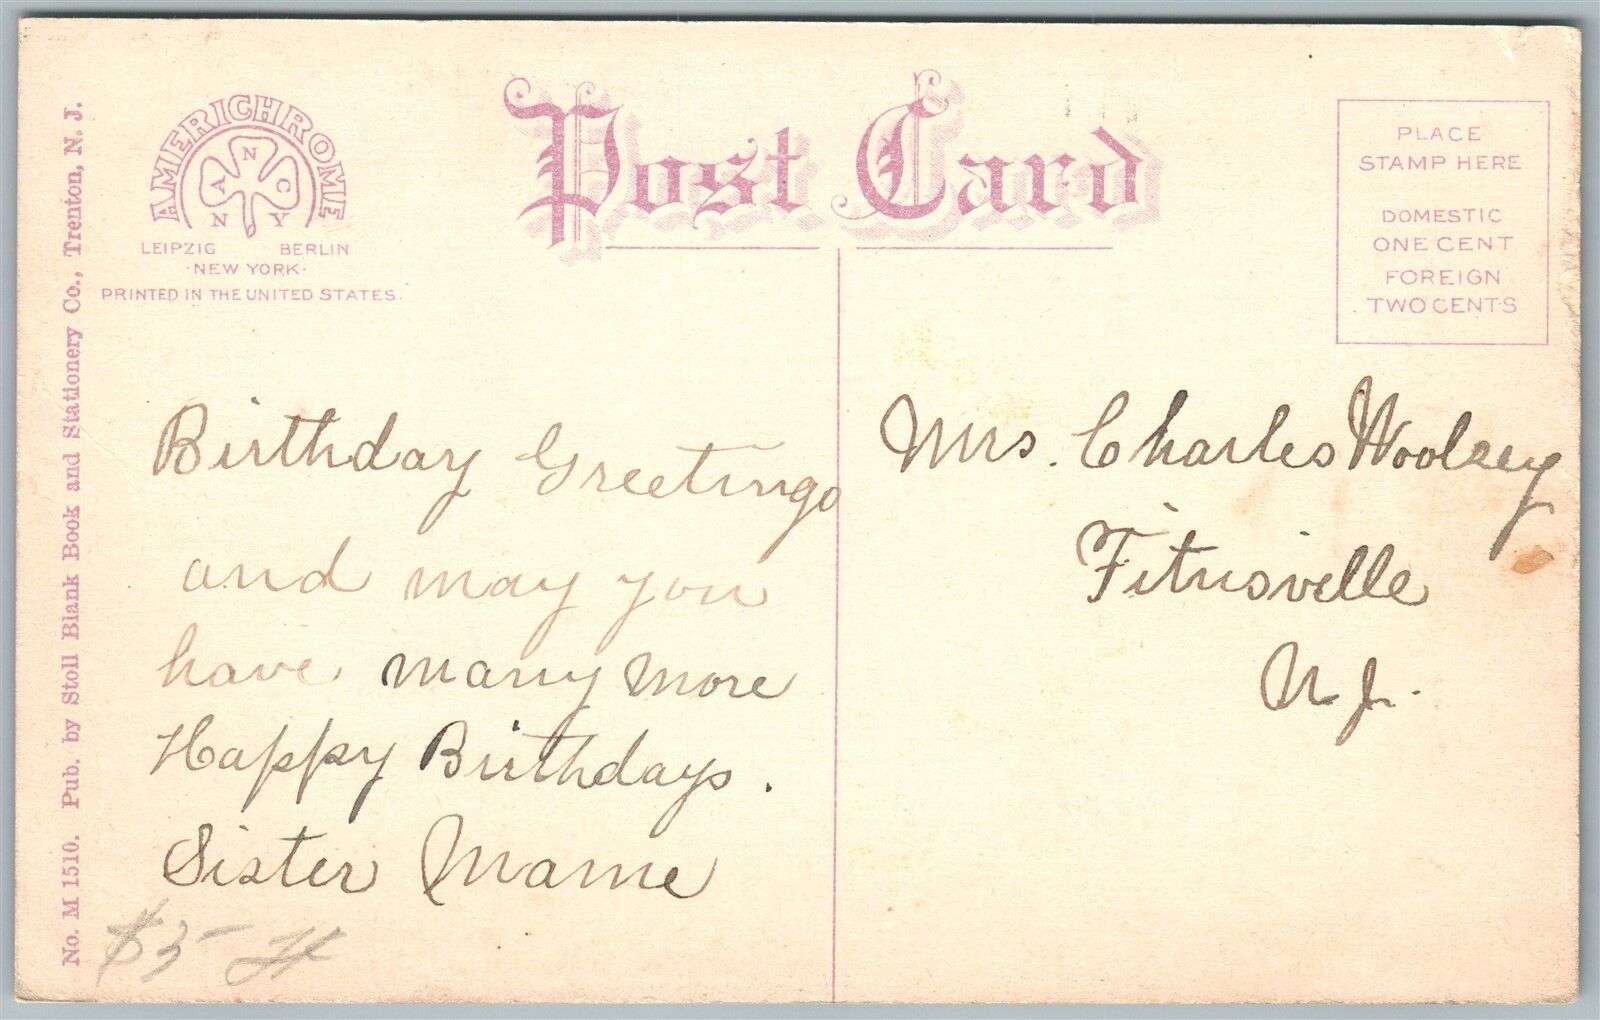 AMERICHROME
A N C
N Y
LEIPZIG BERLIN
·NEW YORK·
PRINTED IN THE UNITED STATES.
Post Card
PLACE
STAMP HERE
DOMESTIC
ONE CENT
FOREIGN
TWO CENTS
No. M 1510. Pub. by Stoll Blank Book and Stationery Co., Trenton, N. J.
Birthday Greetings
and may you
have many more
Happy Birthdays.
Sister Mame
$5
Mrs. Charles Woolsey
Titusville
N. J.